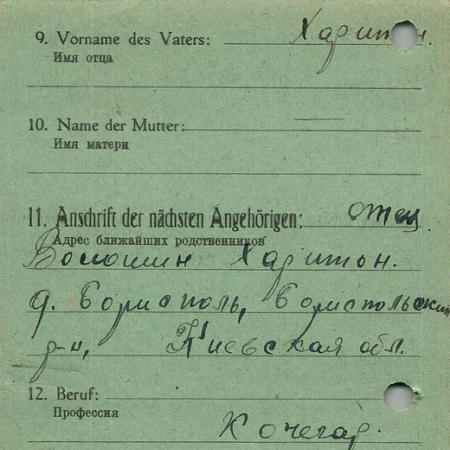 9. Vorname des Vaters: Харитон.
Имя отца
10. Name der Mutter: —
Имя матери
11. Anschrift der nächsten Angehörigen: отец
Адрес ближайших родственников
Волошин Харитон.
д. Борисполь, Бориспольский
р-н, Киевская обл.
12. Beruf:
Профессия
Кочегар.